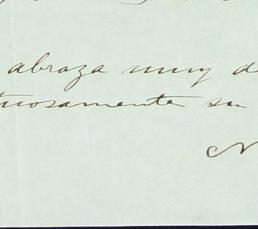 abraza muy de
tuosamente su
N